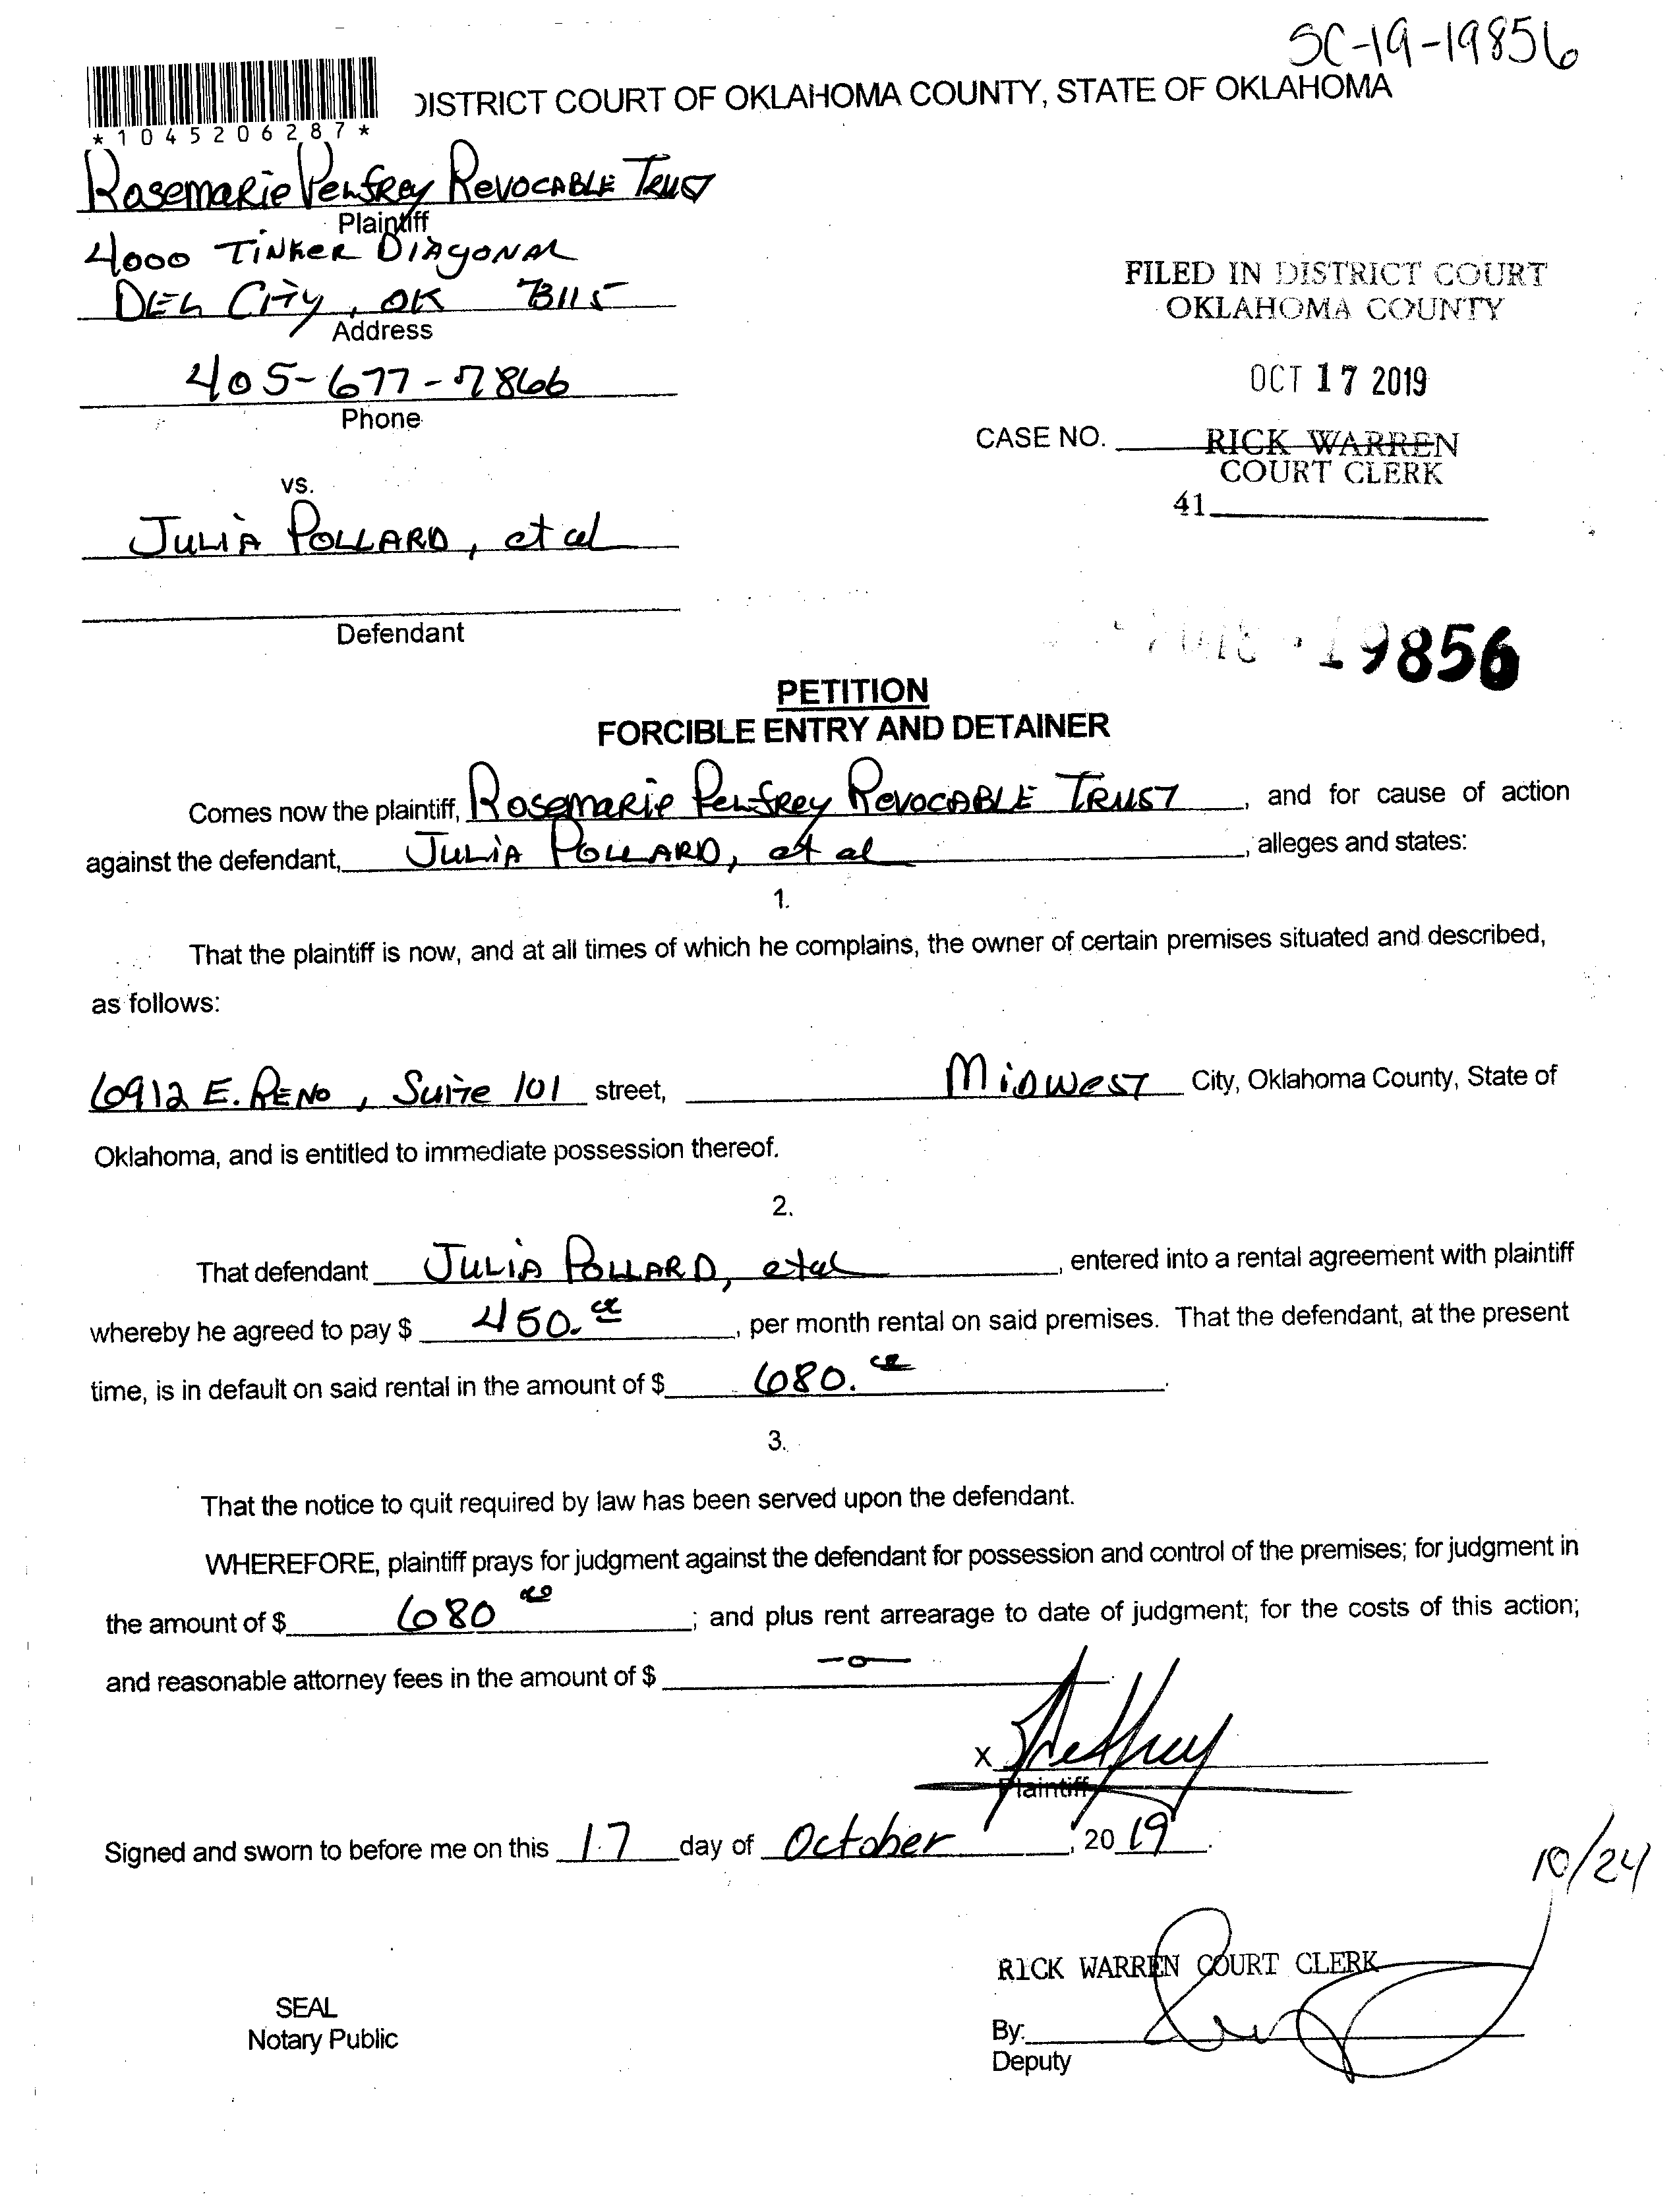 SC-19-19856
DISTRICT COURT OF OKLAHOMA COUNTY, STATE OF OKLAHOMA
*1045206287*
Rosemarie Penfrey Revocable Trust
Plaintiff
4000 Tinker Diagonal
Del City, OK 73115
Address
405-677-7866
Phone
FILED IN DISTRICT COURT
OKLAHOMA COUNTY
OCT 17 2019
CASE NO.
RICK WARREN
COURT CLERK
41
vs.
Julia Pollard, et al
Defendant
19856
PETITION
FORCIBLE ENTRY AND DETAINER
Comes now the plaintiff, Rosemarie Penfrey Revocable Trust, and for cause of action
against the defendant, Julia Pollard, et al, alleges and states:
1.
That the plaintiff is now, and at all times of which he complains, the owner of certain premises situated and described,
as follows:
6912 E. Reno, Suite 101 street, Midwest City, Oklahoma County, State of
Oklahoma, and is entitled to immediate possession thereof.
2.
That defendant Julia Pollard, et al, entered into a rental agreement with plaintiff
whereby he agreed to pay $ 450. per month rental on said premises. That the defendant, at the present
time, is in default on said rental in the amount of $ 680.
3.
That the notice to quit required by law has been served upon the defendant.
WHEREFORE, plaintiff prays for judgment against the defendant for possession and control of the premises; for judgment in
the amount of $ 680; and plus rent arrearage to date of judgment; for the costs of this action;
and reasonable attorney fees in the amount of $ -0-
x
Plaintiff
Signed and sworn to before me on this 17 day of October, 2019.
10/24
RICK WARREN COURT CLERK
SEAL
Notary Public
By:
Deputy